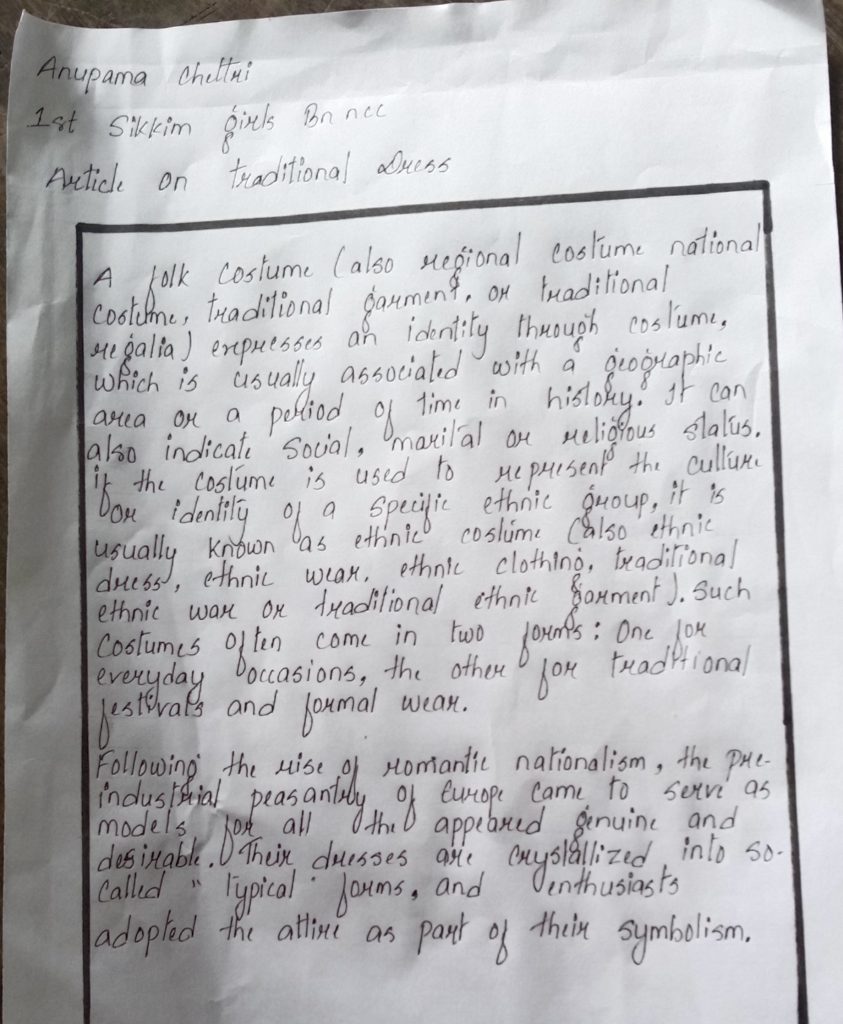 Anupama Chettri
1st Sikkim girls Bn ncc
Article on traditional Dress
A folk costume (also regional costume national
costume, traditional garment, or traditional
regalia) expresses an identity through costume,
which is usually associated with a geographic
area or a period of time in history. It can
also indicate social, marital or religious status.
if the costume is used to represent the culture
or identity of a specific ethnic group, it is
usually known as ethnic costume (also ethnic
dress, ethnic wear, ethnic clothing, traditional
ethnic war or traditional ethnic garment). Such
costumes often come in two forms: One for
everyday occasions, the other for traditional
festivals and formal wear.
Following the rise of romantic nationalism, the pre-
industrial peasantry of Europe came to serve as
models for all the appeared genuine and
desirable. Their dresses are crystallized into so-
called " Typical " forms, and enthusiasts
adopted the attire as part of their symbolism.